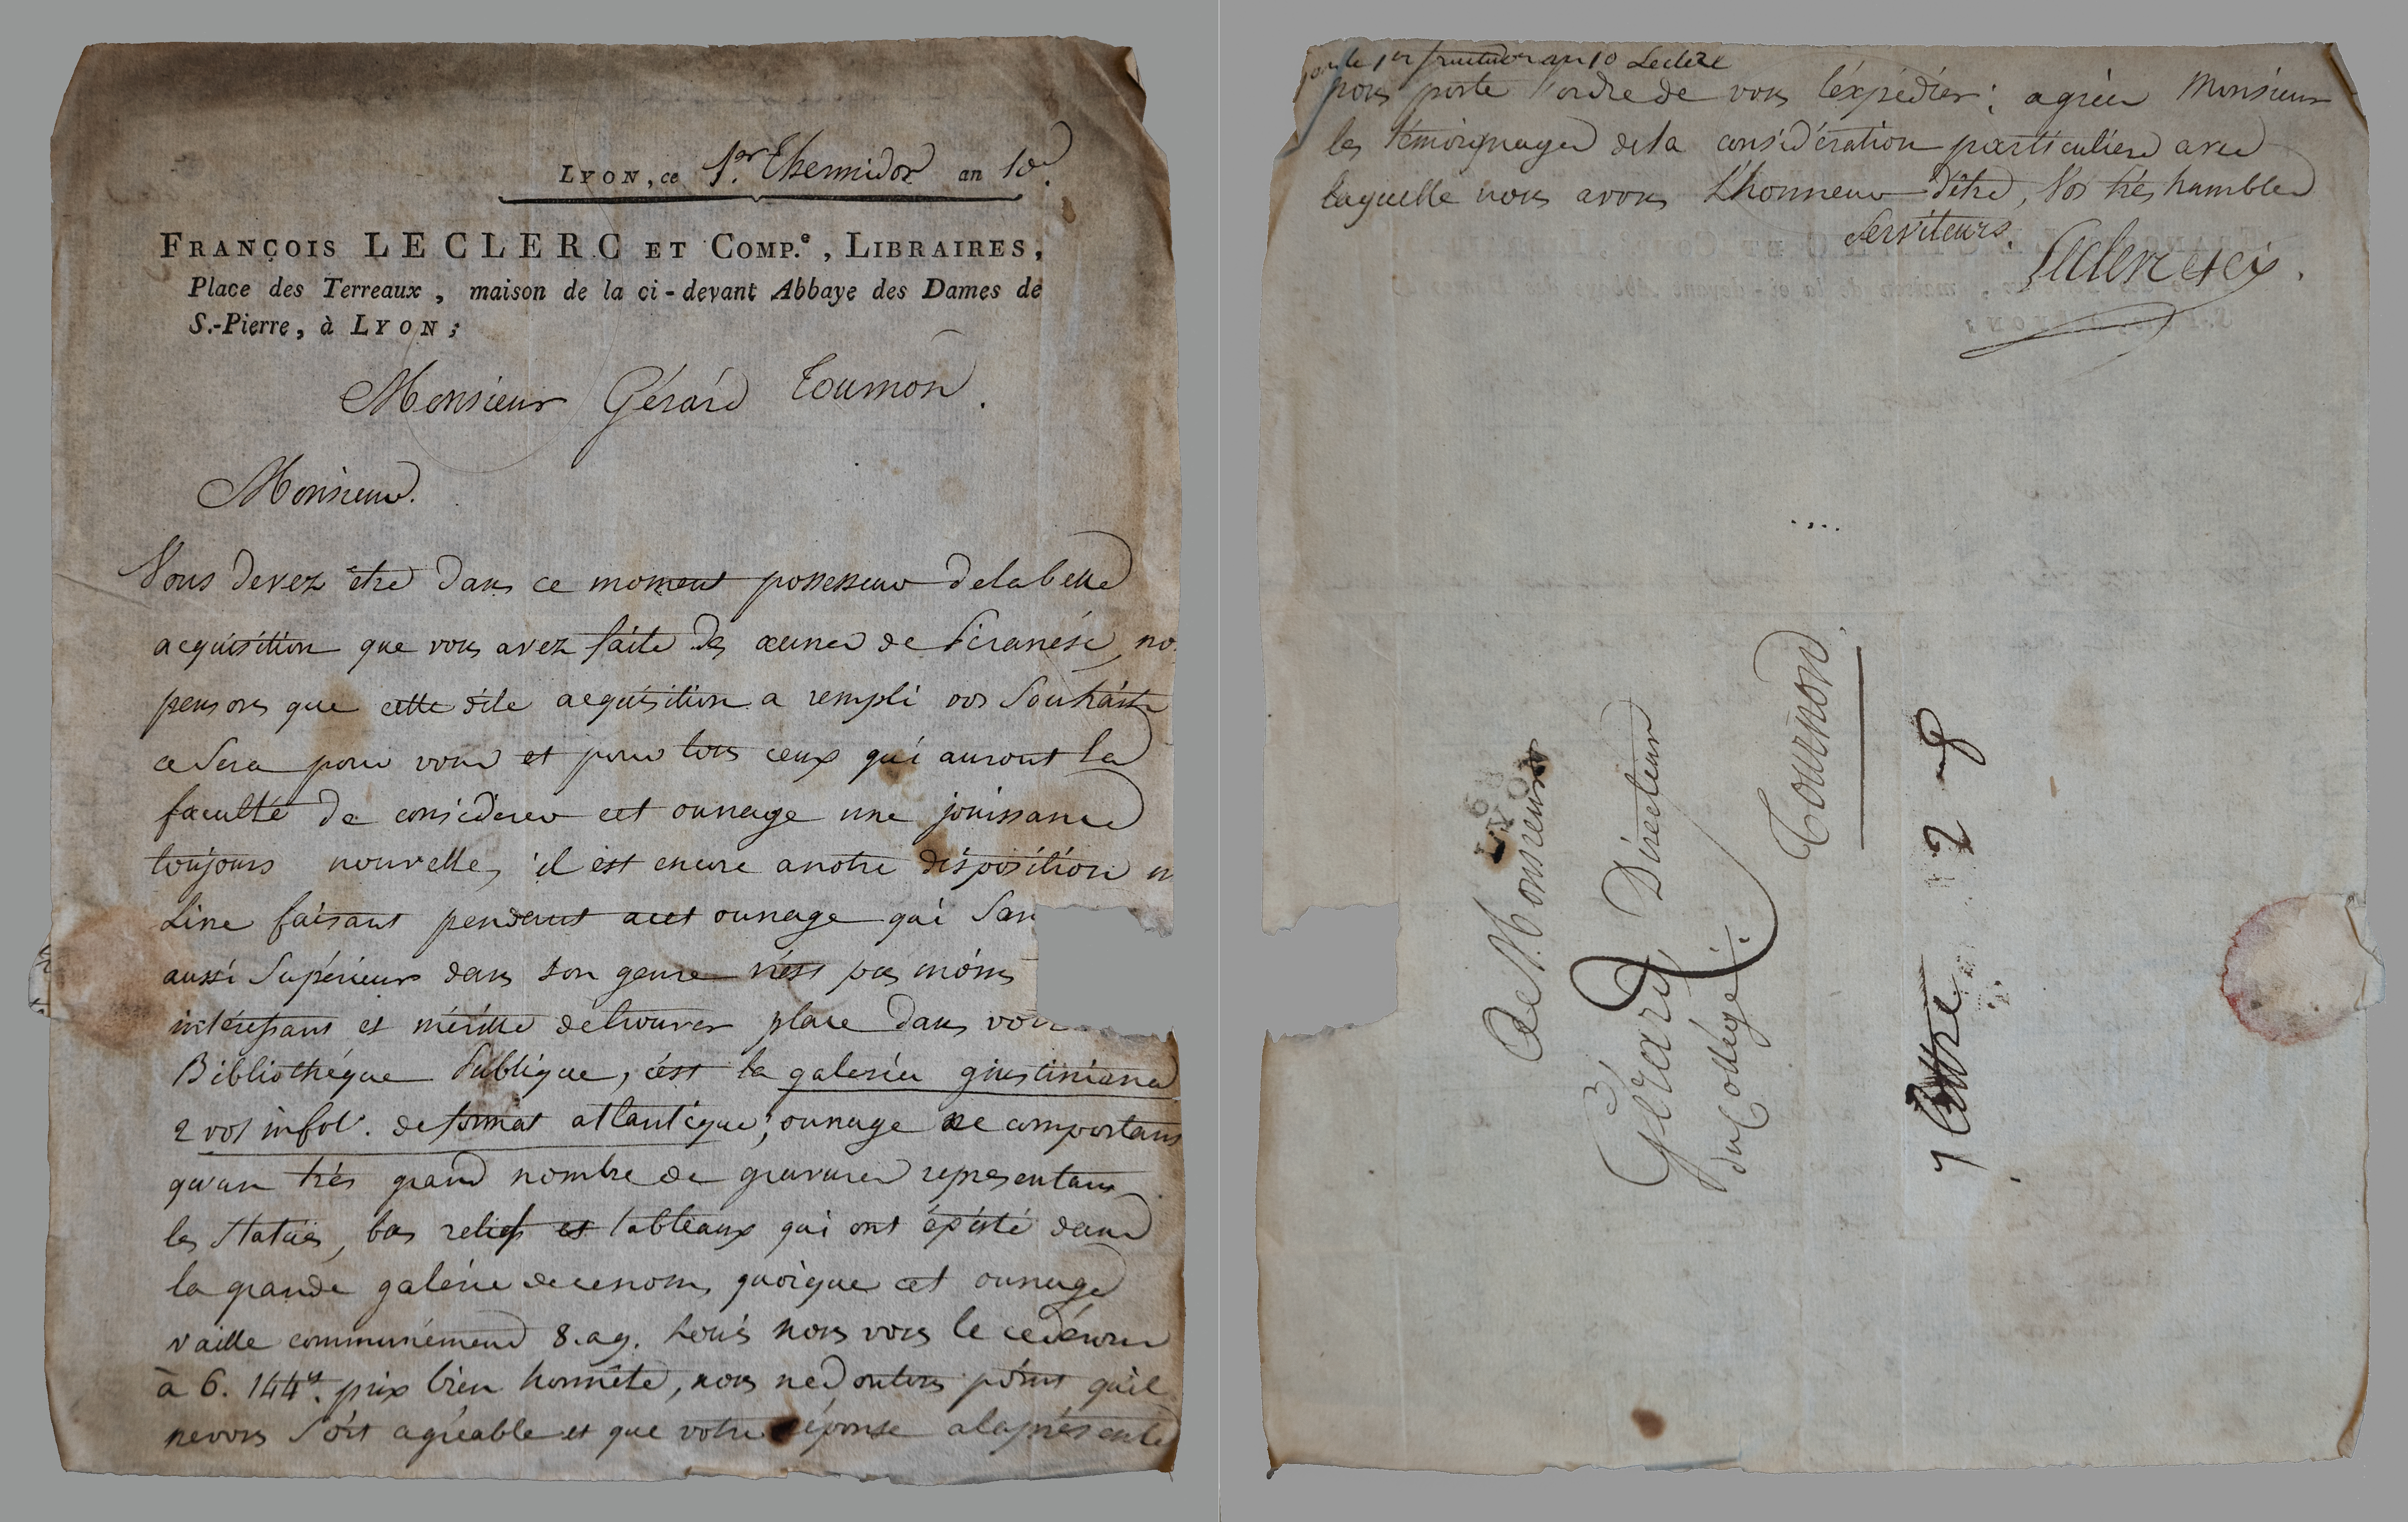 LYON, ce 1.er Thermidor an 10.
FRANÇOIS LECLERC ET COMP.e, LIBRAIRES,
Place des Terreaux, maison de la ci-devant Abbaye des Dames de
S.-Pierre, à LYON;
Monsieur Gérard Tournon.
Monsieur.
Vous devez être dans ce moment possesseur delabelle
acquisition que vous avez faite des œuvres de Piranési, no
pensons que cette dite acquisition a rempli vos Souhaits
ce Sera pour vous et pour tous ceux qui auront la
faculté de considerer cet ouvrage une jouissance
toujours nouvelle, il est encore anotre disposition un
Livre faisant pendant acet ouvrage qui San
aussi Supérieur dans son genre n'est pas moins
intéressant et mérite detrouver place dans votr
Bibliothéque Publique, c'est la galeria giustiniana
2 vol infol°. deformat atlantique, ouvrage ne comportant
qu'un très grand nombre de gravures representans
les Statües, bas reliefs et tableaux qui ont éxisté dans
la grande galérie decenom, quoique cet ouvrage
vaille communément 8.a9. Louis nous vous le cederons
à 6. 144tt. prix bien honnête, nous nedoutons point qu'il
nevous Soit agréable et que votre réponse alaprésente
le 1er fructidor an 10 Leclerc
nous porte l'ordre de vous l'éxpédier; agréer Monsieur
les témoignages dela considération particuliere avec
laquelle nous avons L'honneur d'être, Vos très humbles
Serviteurs.
Leclerc et cie.
68
LYON
A Monsieur
Gérard, Directeur
du Collège.
Tournon
7 lettre 2 8